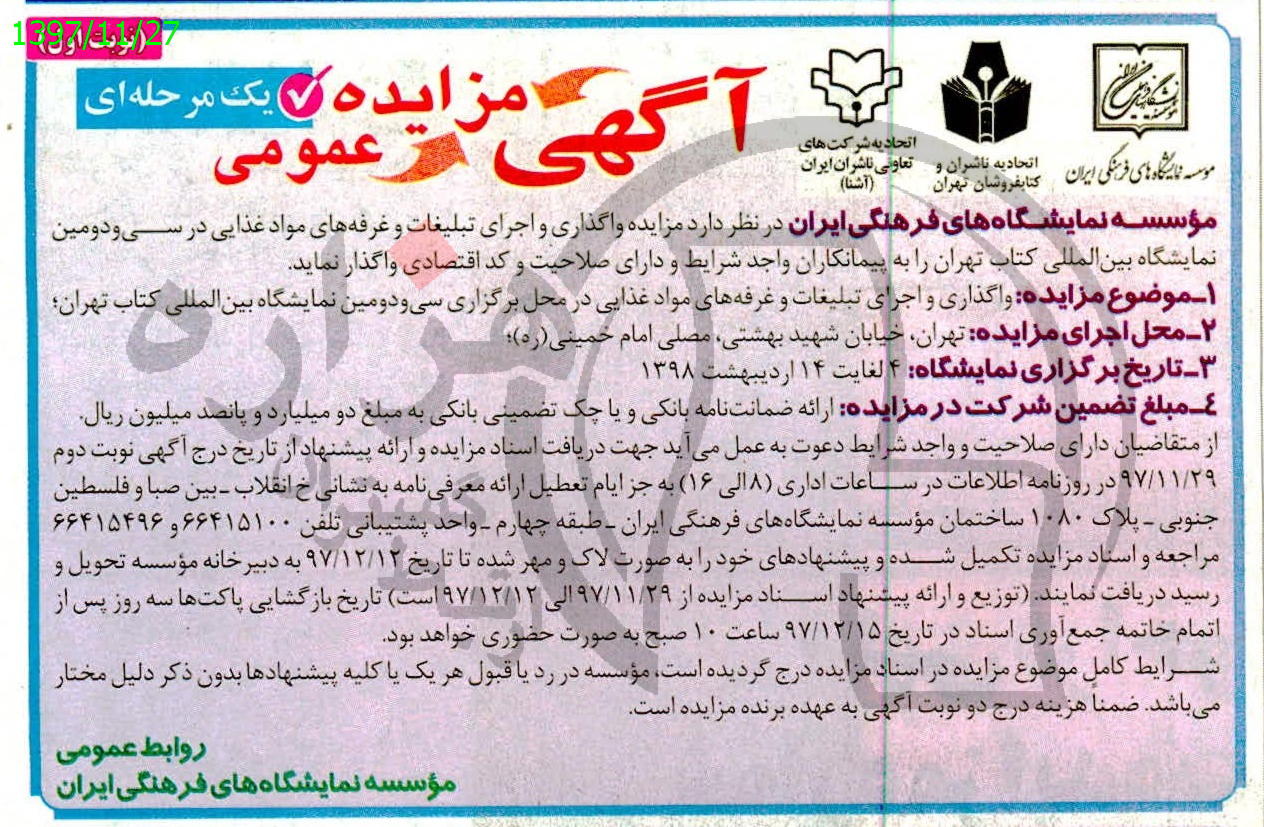 1397/11/27
(نوبت اول)
آگهی مزایده عمومی
یک مرحله‌ای
موسسه نمایشگاه های فرهنگی ایران
اتحادیه ناشران و
کتابفروشان تهران
اتحادیه شرکت‌های
تعاونی ناشران ایران
(آشنا)
مؤسسه نمایشگاه‌های فرهنگی ایران در نظر دارد مزایده واگذاری و اجرای تبلیغات و غرفه‌های مواد غذایی در سی‌ودومین
نمایشگاه بین‌المللی کتاب تهران را به پیمانکاران واجد شرایط و دارای صلاحیت و کد اقتصادی واگذار نماید.
۱ـ موضوع مزایده: واگذاری و اجرای تبلیغات و غرفه‌های مواد غذایی در محل برگزاری سی‌ودومین نمایشگاه بین‌المللی کتاب تهران؛
۲ـ محل اجرای مزایده: تهران، خیابان شهید بهشتی، مصلی امام خمینی(ره)؛
۳ـ تاریخ برگزاری نمایشگاه: ۴ لغایت ۱۴ اردیبهشت ۱۳۹۸
۴ـ مبلغ تضمین شرکت در مزایده: ارائه ضمانت‌نامه بانکی و یا چک تضمینی بانکی به مبلغ دو میلیارد و پانصد میلیون ریال.
از متقاضیان دارای صلاحیت و واجد شرایط دعوت به عمل می‌آید جهت دریافت اسناد مزایده و ارائه پیشنهاد از تاریخ درج آگهی نوبت دوم
۹۷/۱۱/۲۹ در روزنامه اطلاعات در ساعات اداری (۸ الی ۱۶) به جز ایام تعطیل ارائه معرفی‌نامه به نشانی خ انقلاب ـ بین صبا و فلسطین
جنوبی ـ پلاک ۱۰۸۰ ساختمان مؤسسه نمایشگاه‌های فرهنگی ایران ـ طبقه چهارم ـ واحد پشتیبانی تلفن ۶۶۴۱۵۱۰۰ و ۶۶۴۱۵۴۹۶
مراجعه و اسناد مزایده تکمیل شده و پیشنهادهای خود را به صورت لاک و مهر شده تا تاریخ ۹۷/۱۲/۱۲ به دبیرخانه مؤسسه تحویل و
رسید دریافت نمایند. (توزیع و ارائه پیشنهاد اسناد مزایده از ۹۷/۱۱/۲۹ الی ۹۷/۱۲/۱۲ است) تاریخ بازگشایی پاکت‌ها سه روز پس از
اتمام خاتمه جمع‌آوری اسناد در تاریخ ۹۷/۱۲/۱۵ ساعت ۱۰ صبح به صورت حضوری خواهد بود.
شرایط کامل موضوع مزایده در اسناد مزایده درج گردیده است، مؤسسه در رد یا قبول هر یک یا کلیه پیشنهادها بدون ذکر دلیل مختار
می‌باشد. ضمناً هزینه درج دو نوبت آگهی به عهده برنده مزایده است.
روابط عمومی
مؤسسه نمایشگاه‌های فرهنگی ایران
هزاره